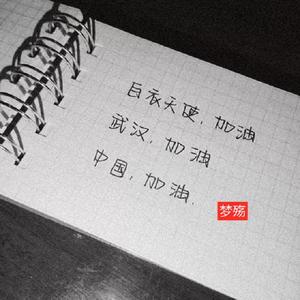 白衣天使，加油
武汉，加油
中国，加油.
梦殇